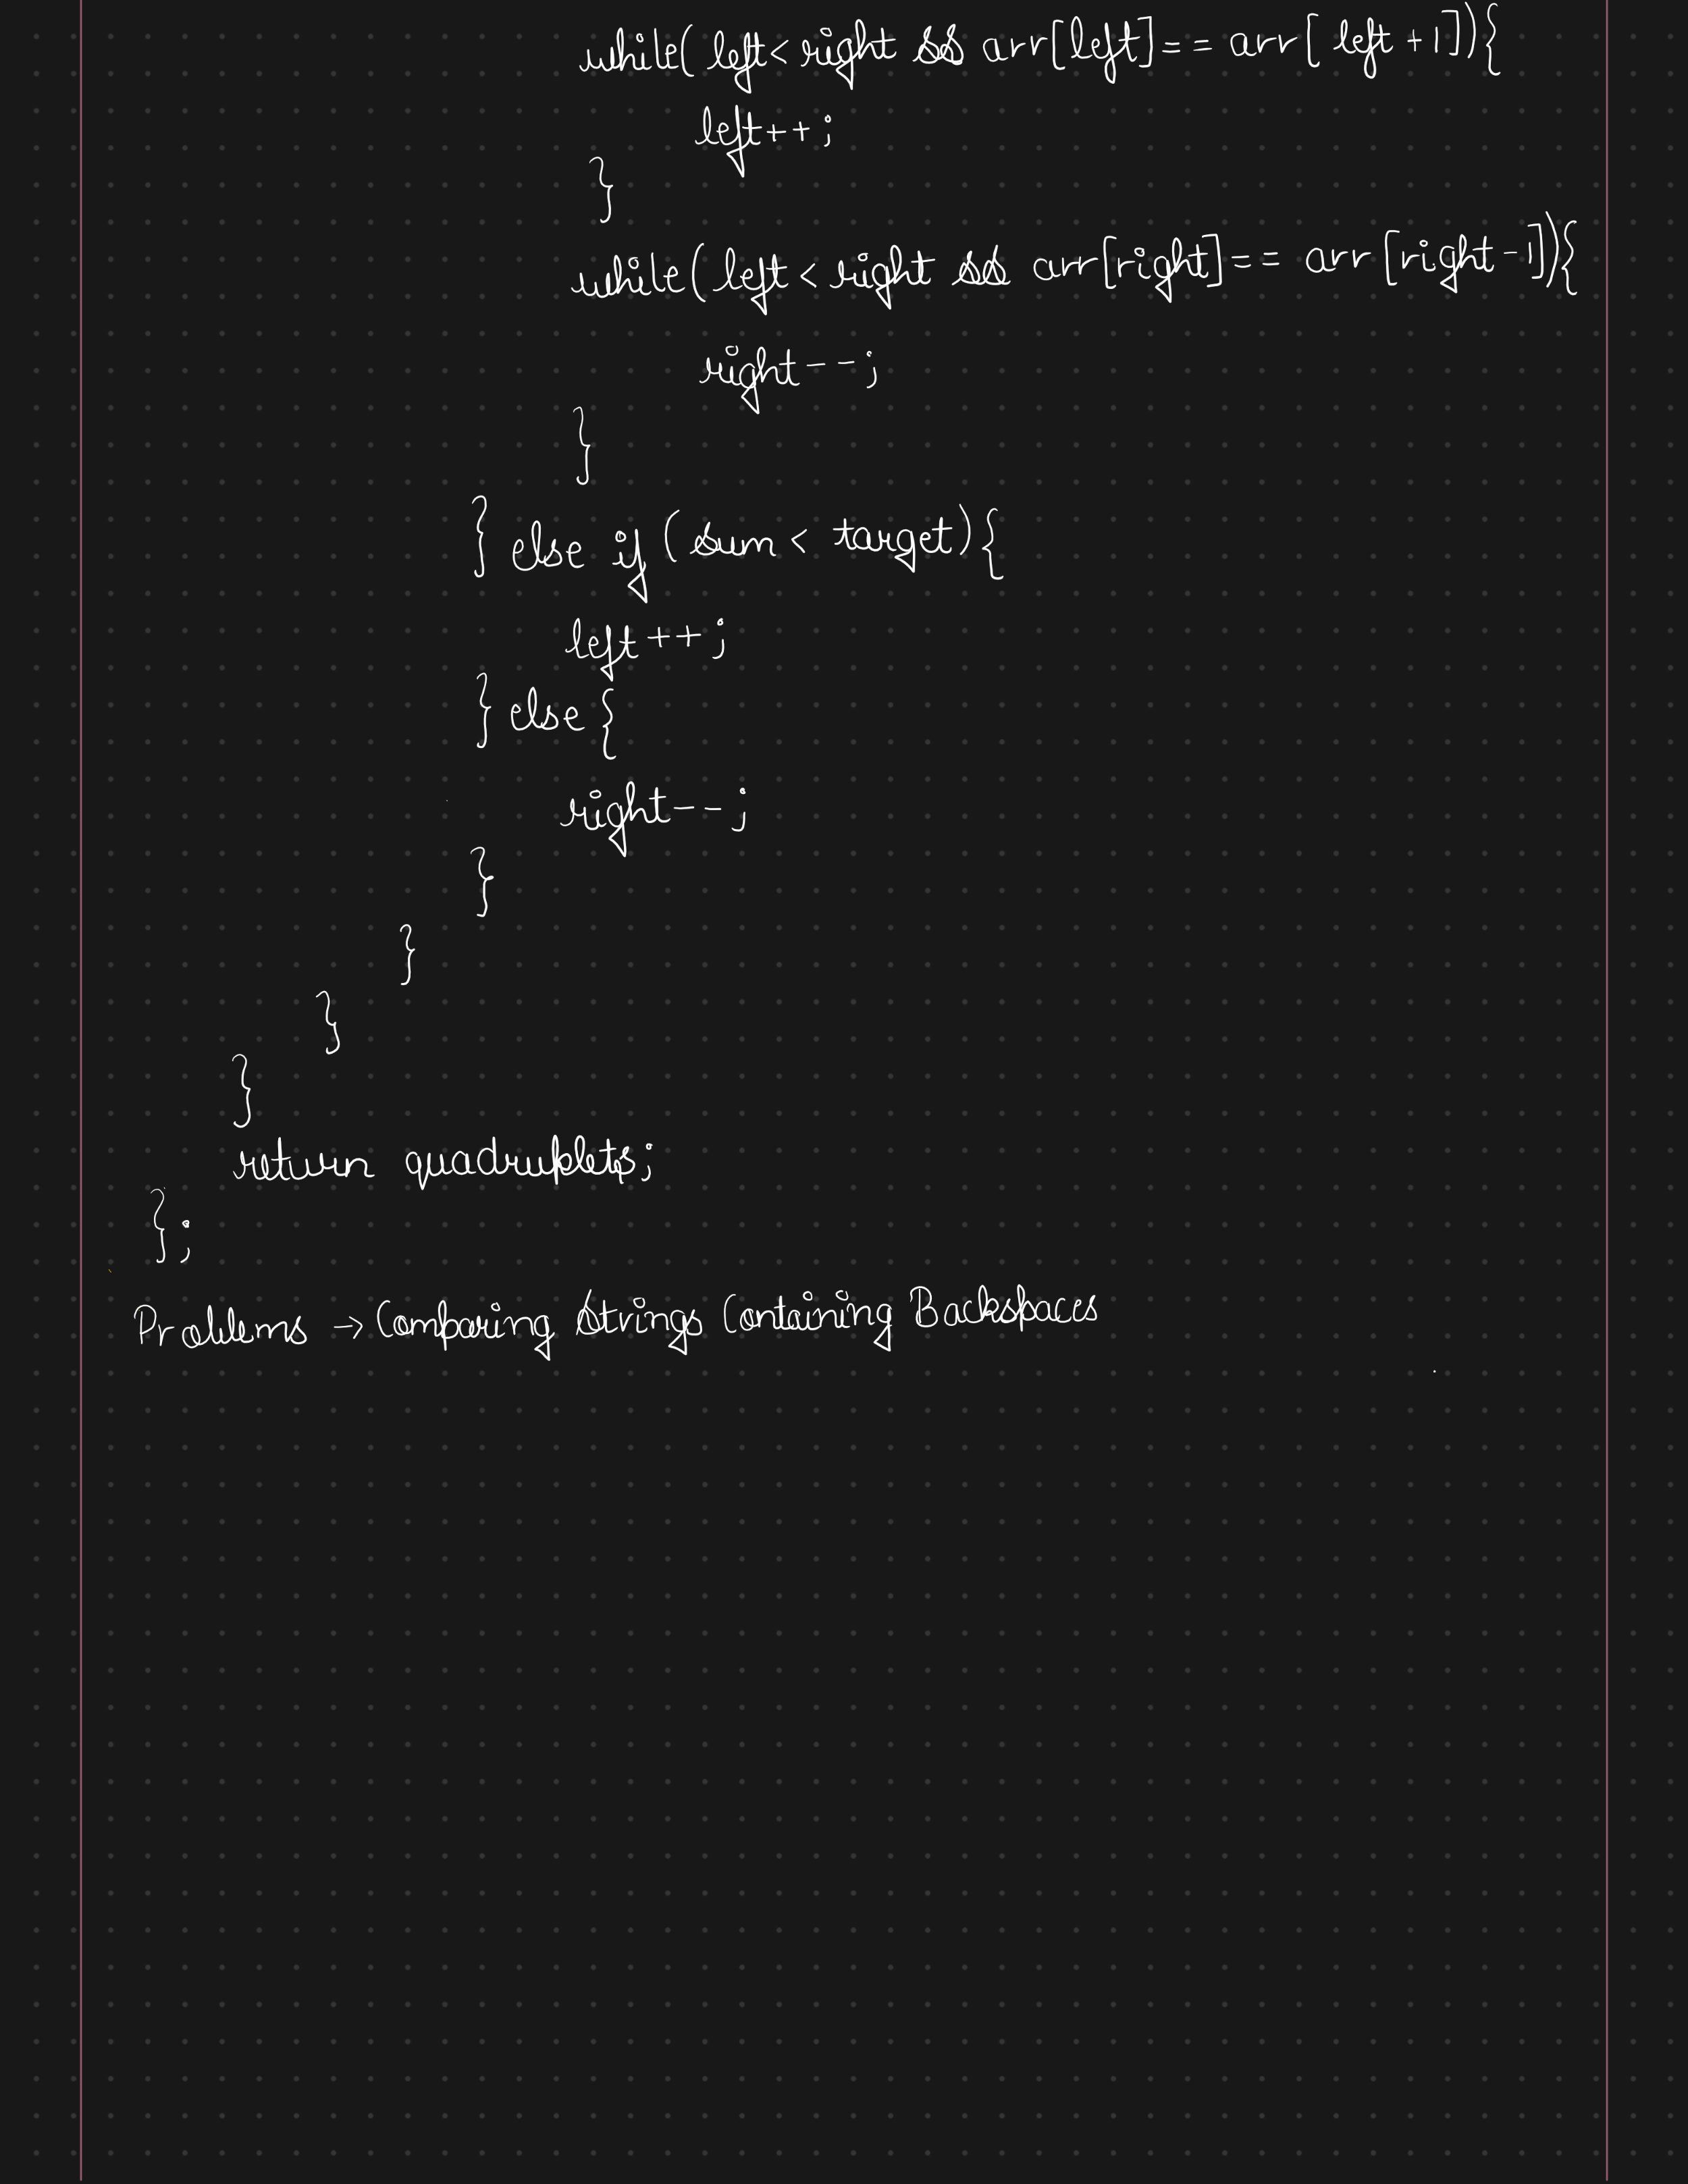 while( left < right && arr[left] == arr[ left +1]){
left++;
}
while( left < right && arr[right] == arr [right-1]){
right--;
}
} else if (sum < target){
left ++;
} else {
right--;
}
}
}
}
return quadruplets;
};
Problems → Comparing Strings Containing Backspaces